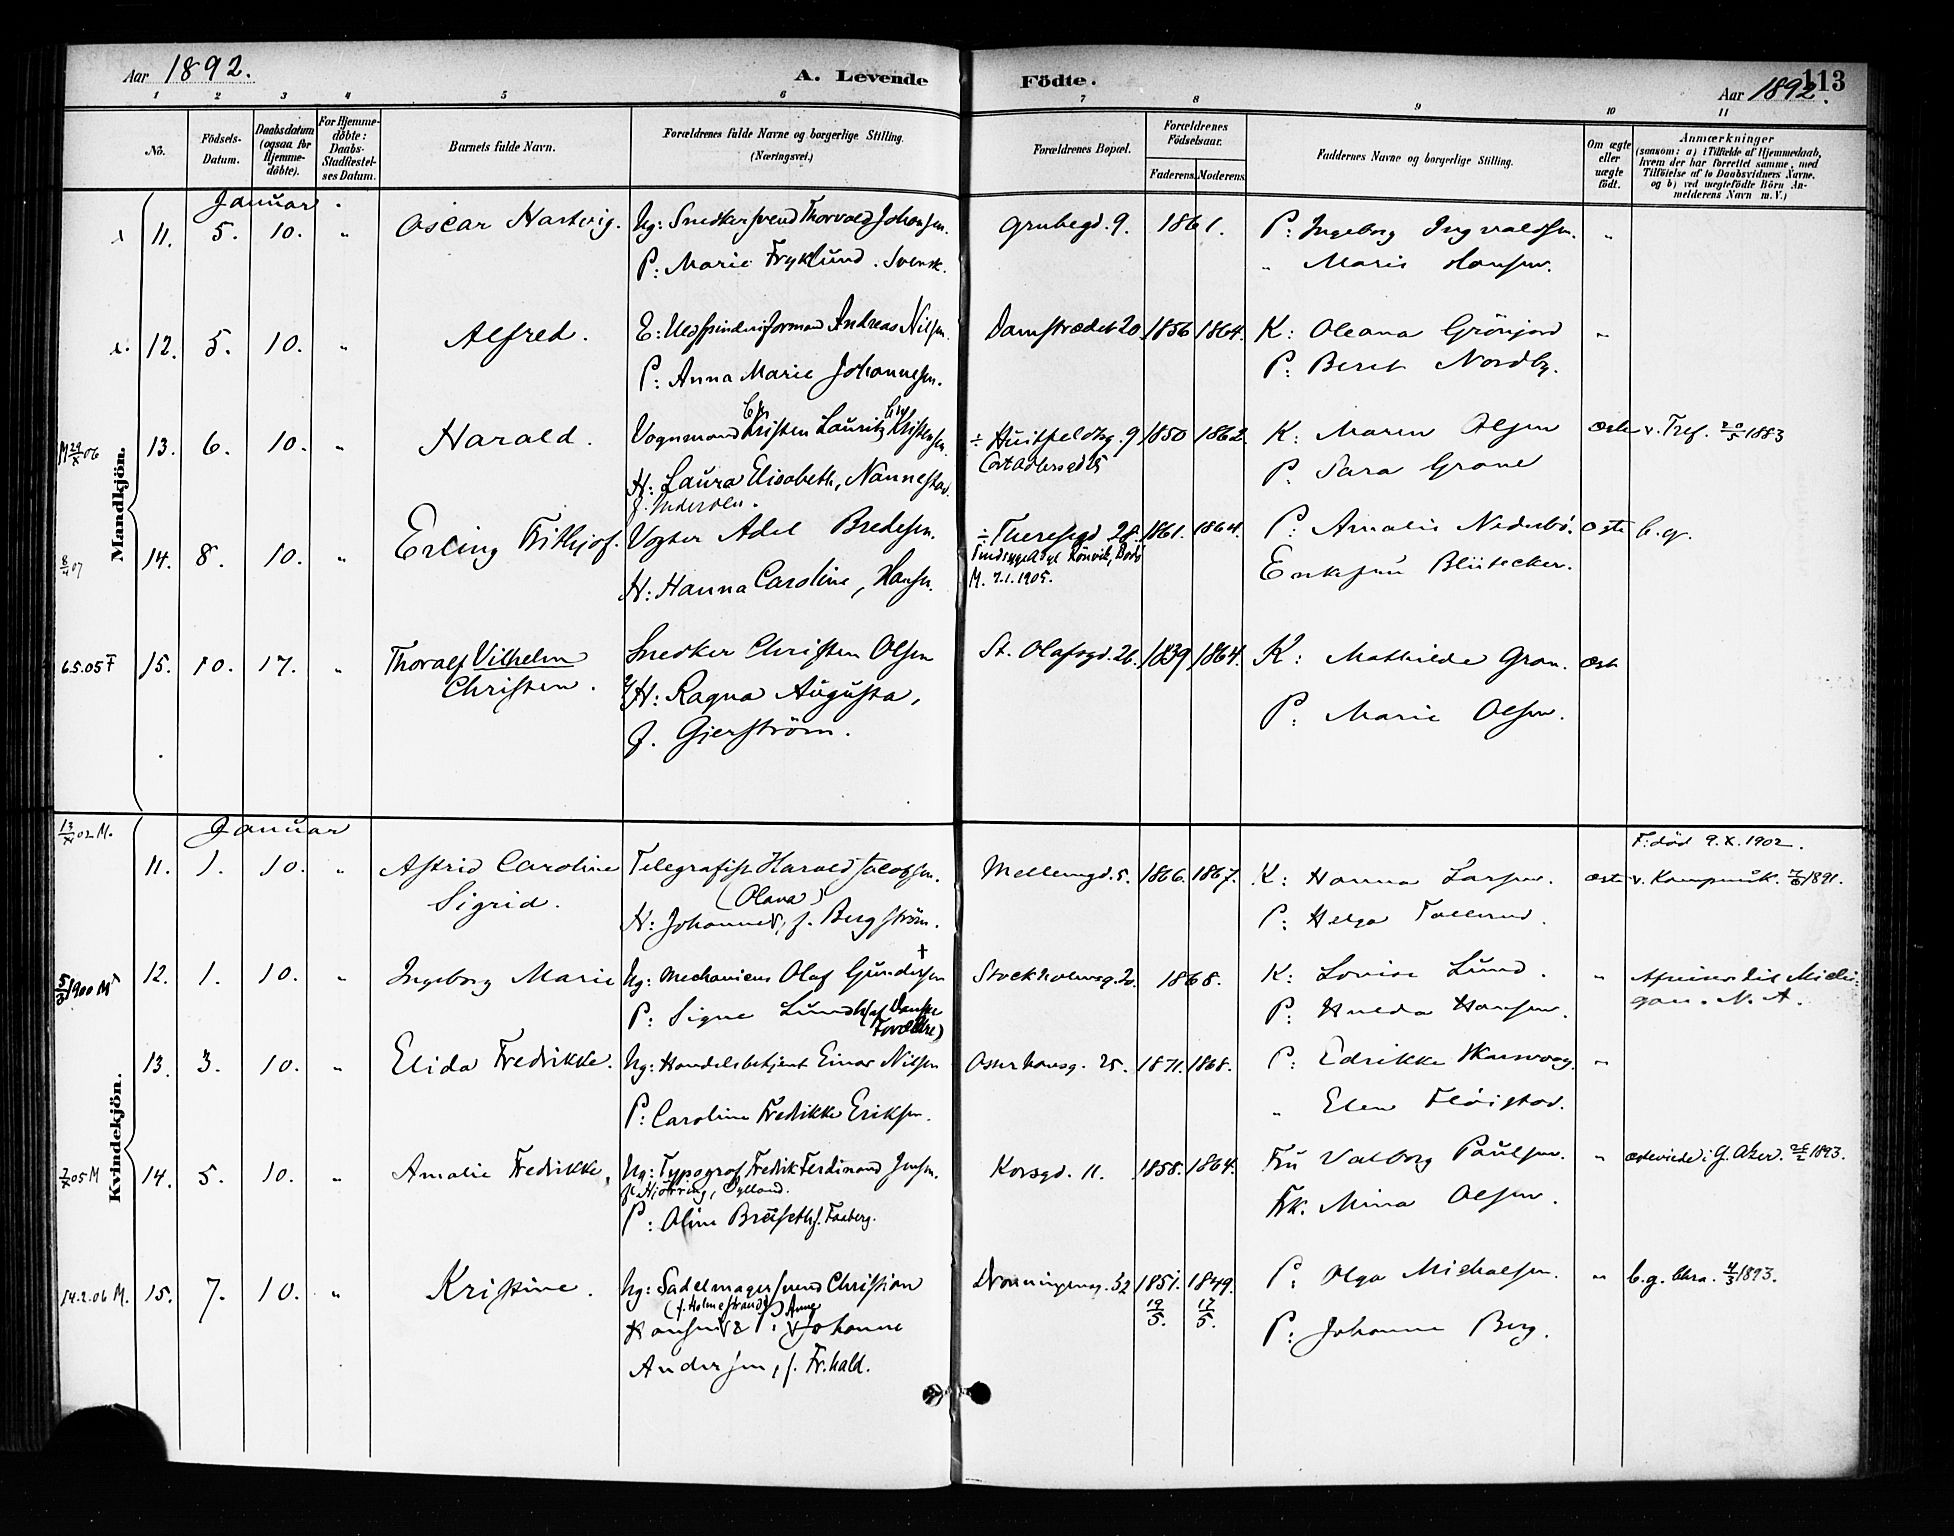 Aar 1892. A. Levende Födte. Aar 1892. 113
1 2 3 4 5 6 7 8 9 10 11
No.
Födsels-Datum.
Daabsdatum (ogsaa for Hjemme-döbte).
For Hjemme-döbte: Daabs-Stadfestel-ses Datum.
Barnets fulde Navn.
Forældrenes fulde Navne og borgerlige Stilling.
(Næringsvei.)
Forældrenes Bopæl.
Forældrenes Födselsaar.
Faderens. Moderens.
Faddernes Navne og borgerlige Stilling.
Om ægte eller uægte födt.
Anmærkninger
(saasom: a) i Tilfælde af Hjemmedaab,
hvem der har forrettet samme, med
Tilföielse af to Daabsvidners Navne.
og b) ved uægtefödte Börn An-
melderens Navn m.V.)
Mandkjön.
Januar.
11. 5. 10. " Oscar Hartvig. Ug: Snedkersvend Thorvald Johansen. Grubegd. 9. 1861. P: Ingeborg Ingvaldsen. "
P: Marie Fryklund. Svensk. " Marie Hansen.
12. 5. 10. " Alfred. E: Uldspinderiformand Andreas Nilsen. Damstrædet 20. 1856 1864. K: Oleana Grönjord "
P: Anna Marie Johannesen. P: Berit Nordby.
M 29/X 06 13. 6. 10. " Harald. Vognmand Kristen Lauritz Kristensen. ÷ Huitfeldtsg. 9 1850 1862. K: Maren Olsen ægte v. Tref. 20/5 1883
H: Laura Elisabeth, Nannestad. Cort Adlersgd 25 P: Sara Grane
f. Pedersen.
8/4 07 14. 8. 10. " Erling Frithjof. Vogter Adel Bredesen. ÷ Theresegd 28. 1861. 1864. P: Amalie Nederbö. ægte b.g.
Sindssygeasyl Rönvik, Bodö
H: Hanna Caroline, Hansen. M. 7.1.1905. Enkefru Blütecker.
6.5.05 F 15. 10. 17. " Thoralf Vilhelm Snedker Christen Olsen St. Olafsgd. 26. 1839 1864. K: Mathilde Gran. ægte
Christen. H: Ragna Augusta,
f. Gjerström. P: Marie Olsen.
Kvindekjön.
13/XI 02 M. Januar F. död 9.X.1902.
11. 1. 10. " Astrid Caroline Telegrafist Harald Jacobsen. Mellemgd. 5. 1866. 1867. K: Hanna Larsen. ægte v. Kampensk. 1891.
Sigrid. (Olava)
H: Johanne, f. Bergström. P: Helga Tollerud.
5/3 1900 M 12. 1. 10. " Ingeborg Marie Ug: Mechanicus Olaf Gundersen † Stockholmsg. 20. 1868. K: Lovise Lund. " Afreiser til Michi-
P: Signe Lund (af Danske P: Hulda Hansen. gan. N. A.
Forældre)
13. 3. 10. " Elida Fredrikke. Ug: Handelsbetjent Einar Nilsen Osterhausg. 25. 1871. 1868. P: Edrikke "
P: Caroline Fredrikke Eriksen. " Elen Flöistad.
7/X 05 M 14. 5. 10. " Amalie Fredrikke, Ug: Typograf Fredrik Ferdinand Jensen. Korsgd. 11. 1858. 1864. Fru Valborg Paulsen. " ægteviede i G. Aker. 26/2 1893.
f. Hjörring, Jylland.
P: Oline Bræseth f. Faaberg. Frk. Mina Olsen.
14.2.06 M. 15. 7. 10. " Kristine. Ug: Sadelmagersvend Christian Dronningensg. 32 1851. 1849. P: Olga Michalsen. " b.g. Chra. 4/3 1893.
(f. Holmestrand) Anne 19/5. 17/5.
Hansen & P: Johanne P: Johanne Berg.
Andersen, f. Fr.hald.